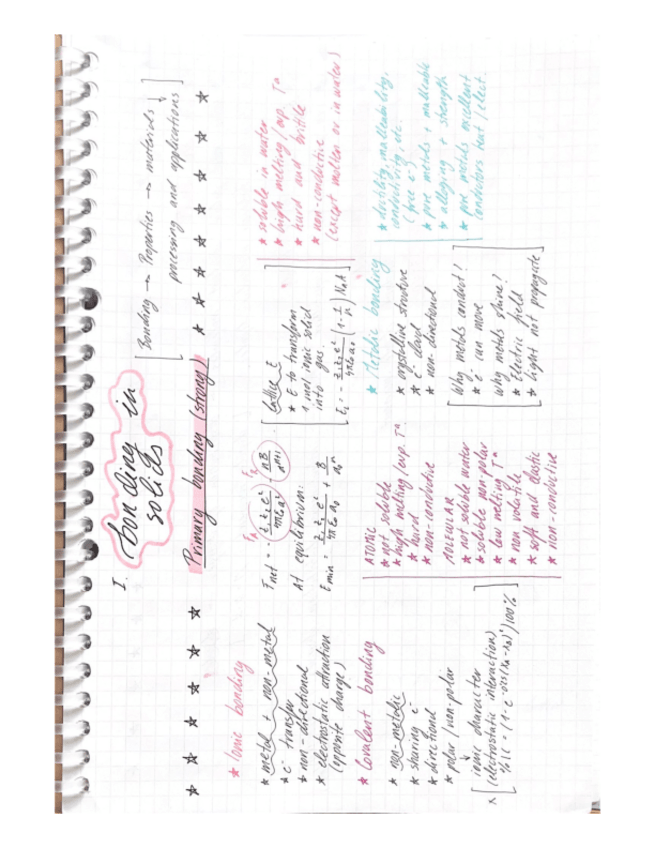 I. Bonding in
solids
[Bonding → Properties → materials]
processing and applications
Primary bonding (strong)
* Ionic bonding
* metal + non-metal
* e⁻ transfer
* non-directional
* electrostatic attraction
(opposite charge)
F net = - z₁z₂e² / 4πε₀a² - nB / aⁿ⁺¹
At equilibrium:
E min = z₁z₂e² / 4πε₀a₀ + B / a₀ⁿ
[Lattice E
* E to transform
1 mol ionic solid
into gas
E_L = - z₁z₂e² / 4πε₀a₀ (1 - 1/n) NₐA]
* soluble in water
* high melting/evp. Tᵃ
* hard and brittle
* non-conductive
(except molten or in water)
* Covalent bonding
* non-metalic
* sharing e⁻
* directional
* polar / non-polar
x [ionic character
(electrostatic interaction)
% IC = (1 - e^-0.25(Xa-Xb)²) 100 %]
ATOMIC
* not soluble
* high melting/evp. Tᵃ
* hard
* non-conductive
MOLECULAR
* not soluble water
* soluble non-polar
* low melting Tᵃ
* non volatile
* soft and elastic
* non-conductive
* Metalic bonding
* crystalline structure
* e⁻ cloud
* non-directional
[Why metals conduct?
* e⁻ can move
Why metals shine?
* Electric field
light not propagate]
* ductility, malleability,
conductivity, etc.
(free e⁻s)
* pure metals + malleable
* alloying + strength
* pure metals excellent
conductors heat / elect.